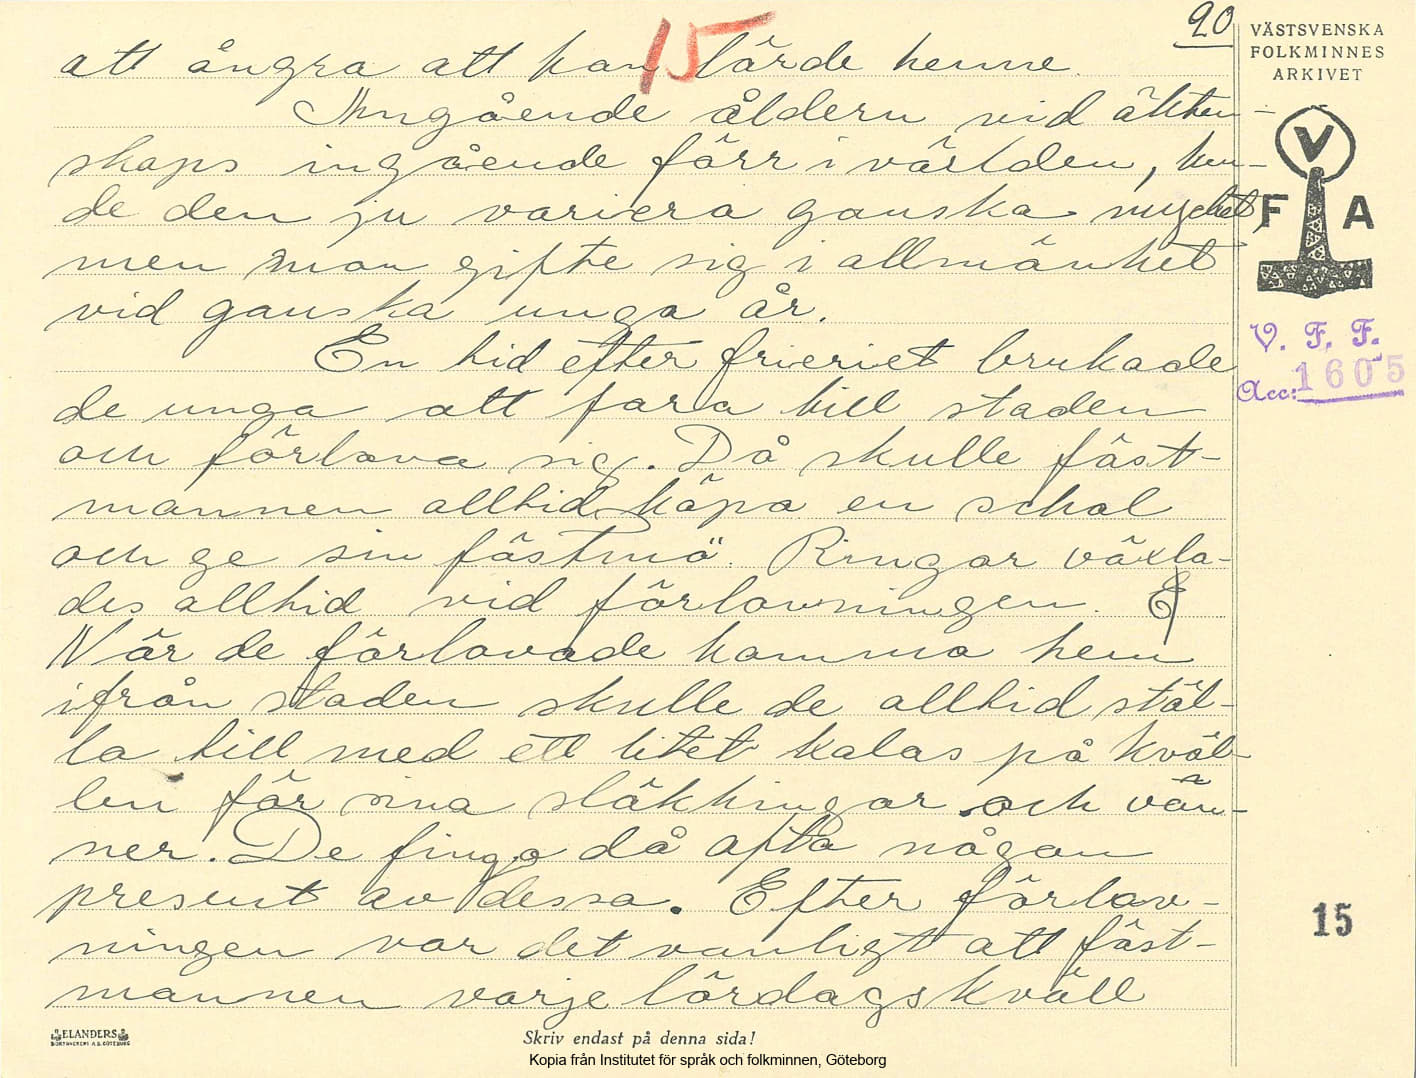 20
15
att ångra att han lärde henne.
Angående åldern vid äkten-
skaps ingående förr i världen, kun-
de den ju variera ganska mycket,
men man gifte sig i allmänhet
vid ganska unga år.
En tid efter frieriet brukade
de unga att fara till staden
och förlova sig. Då skulle fäst-
mannen alltid köpa en schal
och ge sin fästmö. Ringar växla-
des alltid vid förlovningen. E
När de förlovade komma hem
ifrån staden skulle de alltid stäl-
la till med ett litet kalas på kväl-
len för sina släktingar och vän-
ner. De fingo då ofta någon
present av dessa. Efter förlov-
ningen var det vanligt att fäst-
mannen varje lördagskväll
VÄSTSVENSKA
FOLKMINNES
ARKIVET
V
F A
V. F. F.
Acc: 1605
15
ELANDERS
BOKTRYCKERI A.B. GÖTEBORG
Skriv endast på denna sida!
Kopia från Institutet för språk och folkminnen, Göteborg